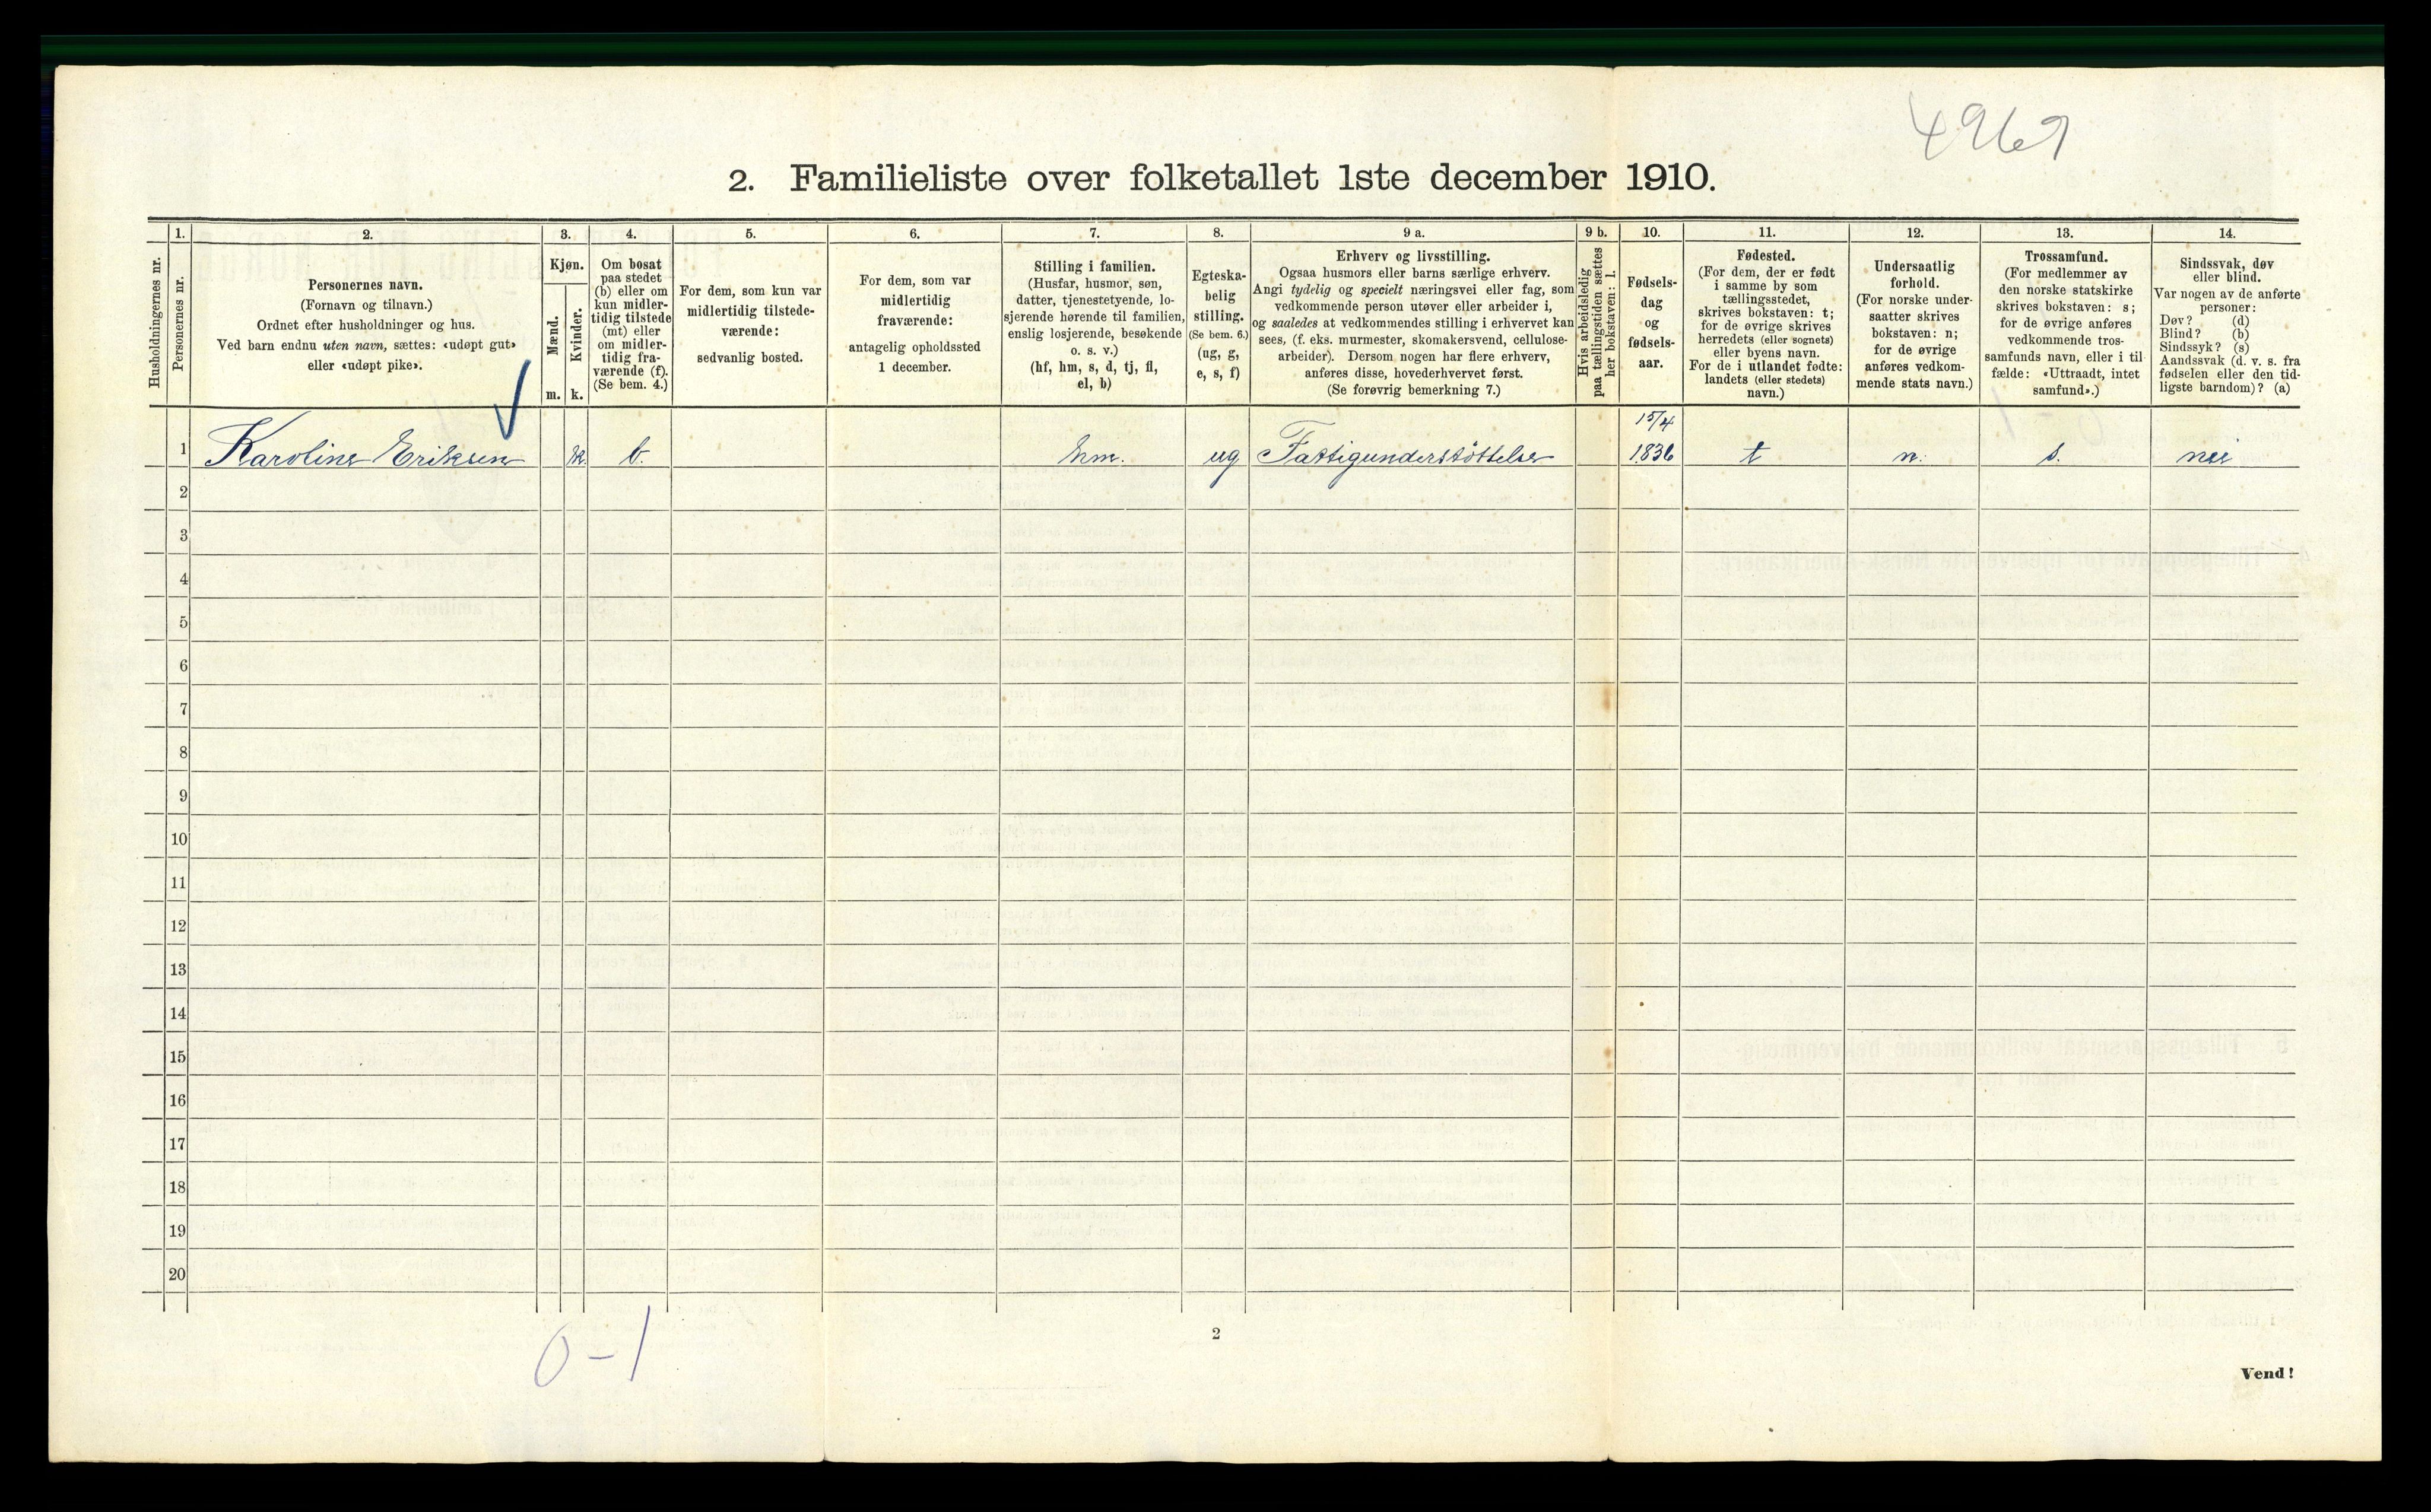 4969
2. Familieliste over folketallet 1ste december 1910.
Husholdningernes nr.
1.
Personernes nr.
2.
Personernes navn.
(Fornavn og tilnavn.)
Ordnet efter husholdninger og hus.
Ved barn endnu uten navn, sættes: «udøpt gut»
eller «udøpt pike».
3.
Kjøn.
Mænd.
Kvinder.
m. k.
4.
Om bosat
paa stedet
(b) eller om
kun midler-
tidig tilstede
(mt) eller
om midler-
tidig fra-
værende (f).
(Se bem. 4.)
5.
For dem, som kun var
midlertidig tilstede-
værende:
sedvanlig bosted.
6.
For dem, som var
midlertidig
fraværende:
antagelig opholdssted
1 december.
7.
Stilling i familien.
(Husfar, husmor, søn,
datter, tjenestetyende, lo-
sjerende hørende til familien,
enslig losjerende, besøkende
o. s. v.)
(hf, hm, s, d, tj, fl,
el, b)
8.
Egteska-
belig
stilling.
(Se bem. 6.)
(ug, g,
e, s, f)
9 a.
Erhverv og livsstilling.
Ogsaa husmors eller barns særlige erhverv.
Angi tydelig og specielt næringsvei eller fag, som
vedkommende person utøver eller arbeider i,
og saaledes at vedkommendes stilling i erhvervet kan
sees, (f. eks. murmester, skomakersvend, cellulose-
arbeider). Dersom nogen har flere erhverv,
anføres disse, hovederhvervet først.
(Se forøvrig bemerkning 7.)
9 b.
Hvis arbeidsledig
paa tællingstiden sættes
her bokstaven: l.
10.
Fødsels-
dag
og
fødsels-
aar.
11.
Fødested.
(For dem, der er født
i samme by som
tællingsstedet,
skrives bokstaven: t;
for de øvrige skrives
herredets (eller sognets)
eller byens navn.
For de i utlandet fødte:
landets (eller stedets)
navn.)
12.
Undersaatlig
forhold.
(For norske under-
saatter skrives
bokstaven: n;
for de øvrige
anføres vedkom-
mende stats navn.)
13.
Trossamfund.
(For medlemmer av
den norske statskirke
skrives bokstaven: s;
for de øvrige anføres
vedkommende tros-
samfunds navn, eller i til-
fælde: «Uttraadt, intet
samfund».)
14.
Sindssvak, døv
eller blind.
Var nogen av de anførte
personer:
Døv? (d)
Blind? (b)
Sindssyk? (s)
Aandssvak (d. v. s. fra
fødselen eller den tid-
ligste barndom)? (a)
15/4
1 Karoline Eriksen k. b. hm. ug Fattigunderstøttelse 1836 t n. s. nei
2
3
4
5
6
7
8
9
10
11
12
13
14
15
16
17
18
19
20
0-1
2
Vend!